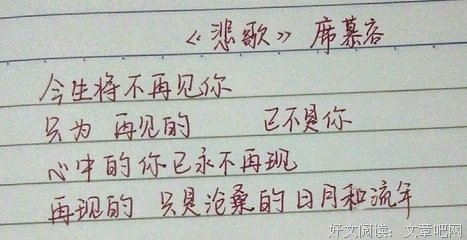 《悲歌》 席慕容
今生将不再见你
只为 再见的 已不是你
心中的你已永不再现
再现的 只是沧桑的日月和流年
好文阅读：文章吧网